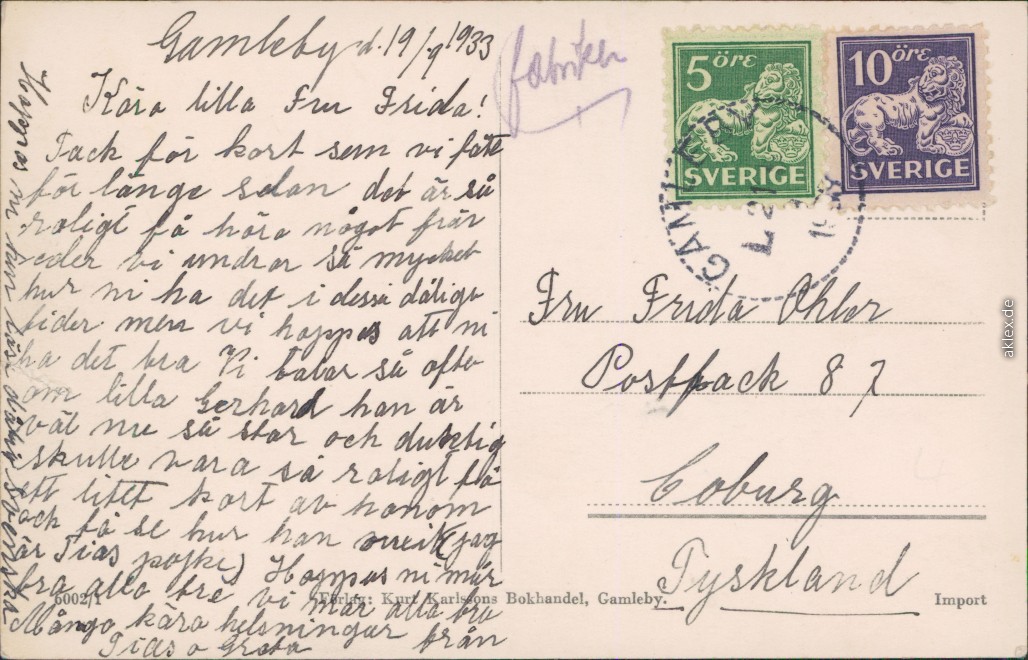 Gamleby d. 19/9 1933
Kära lilla Fru Frida!
Tack för kort som vi fått
för länge sedan det är så
roligt få höra något från
eder vi undrar så mycket
hur ni ha det i dessa dåliga
tider men vi hoppas att ni
ha det bra Vi talar så ofta
om lilla Gerhard han är
väl nu så stor och duktig
skulle vara så roligt få
ett litet kort av honom
och få se hur han (jag
är Tias pojke) Hoppas ni mår
bra alla tre vi mår alla bra
Många kära helsningar från
Tias o Greta
Hoppas ni kan läsa svenska
fabriken
5 öre
SVERIGE
10 öre
SVERIGE
GAMLEBY
L 21
19
Fru Frida Ohler
Postfack 87
Coburg
Tyskland
6002/1
Förlag: Kurt Karlssons Bokhandel, Gamleby.
Import
aklex.de